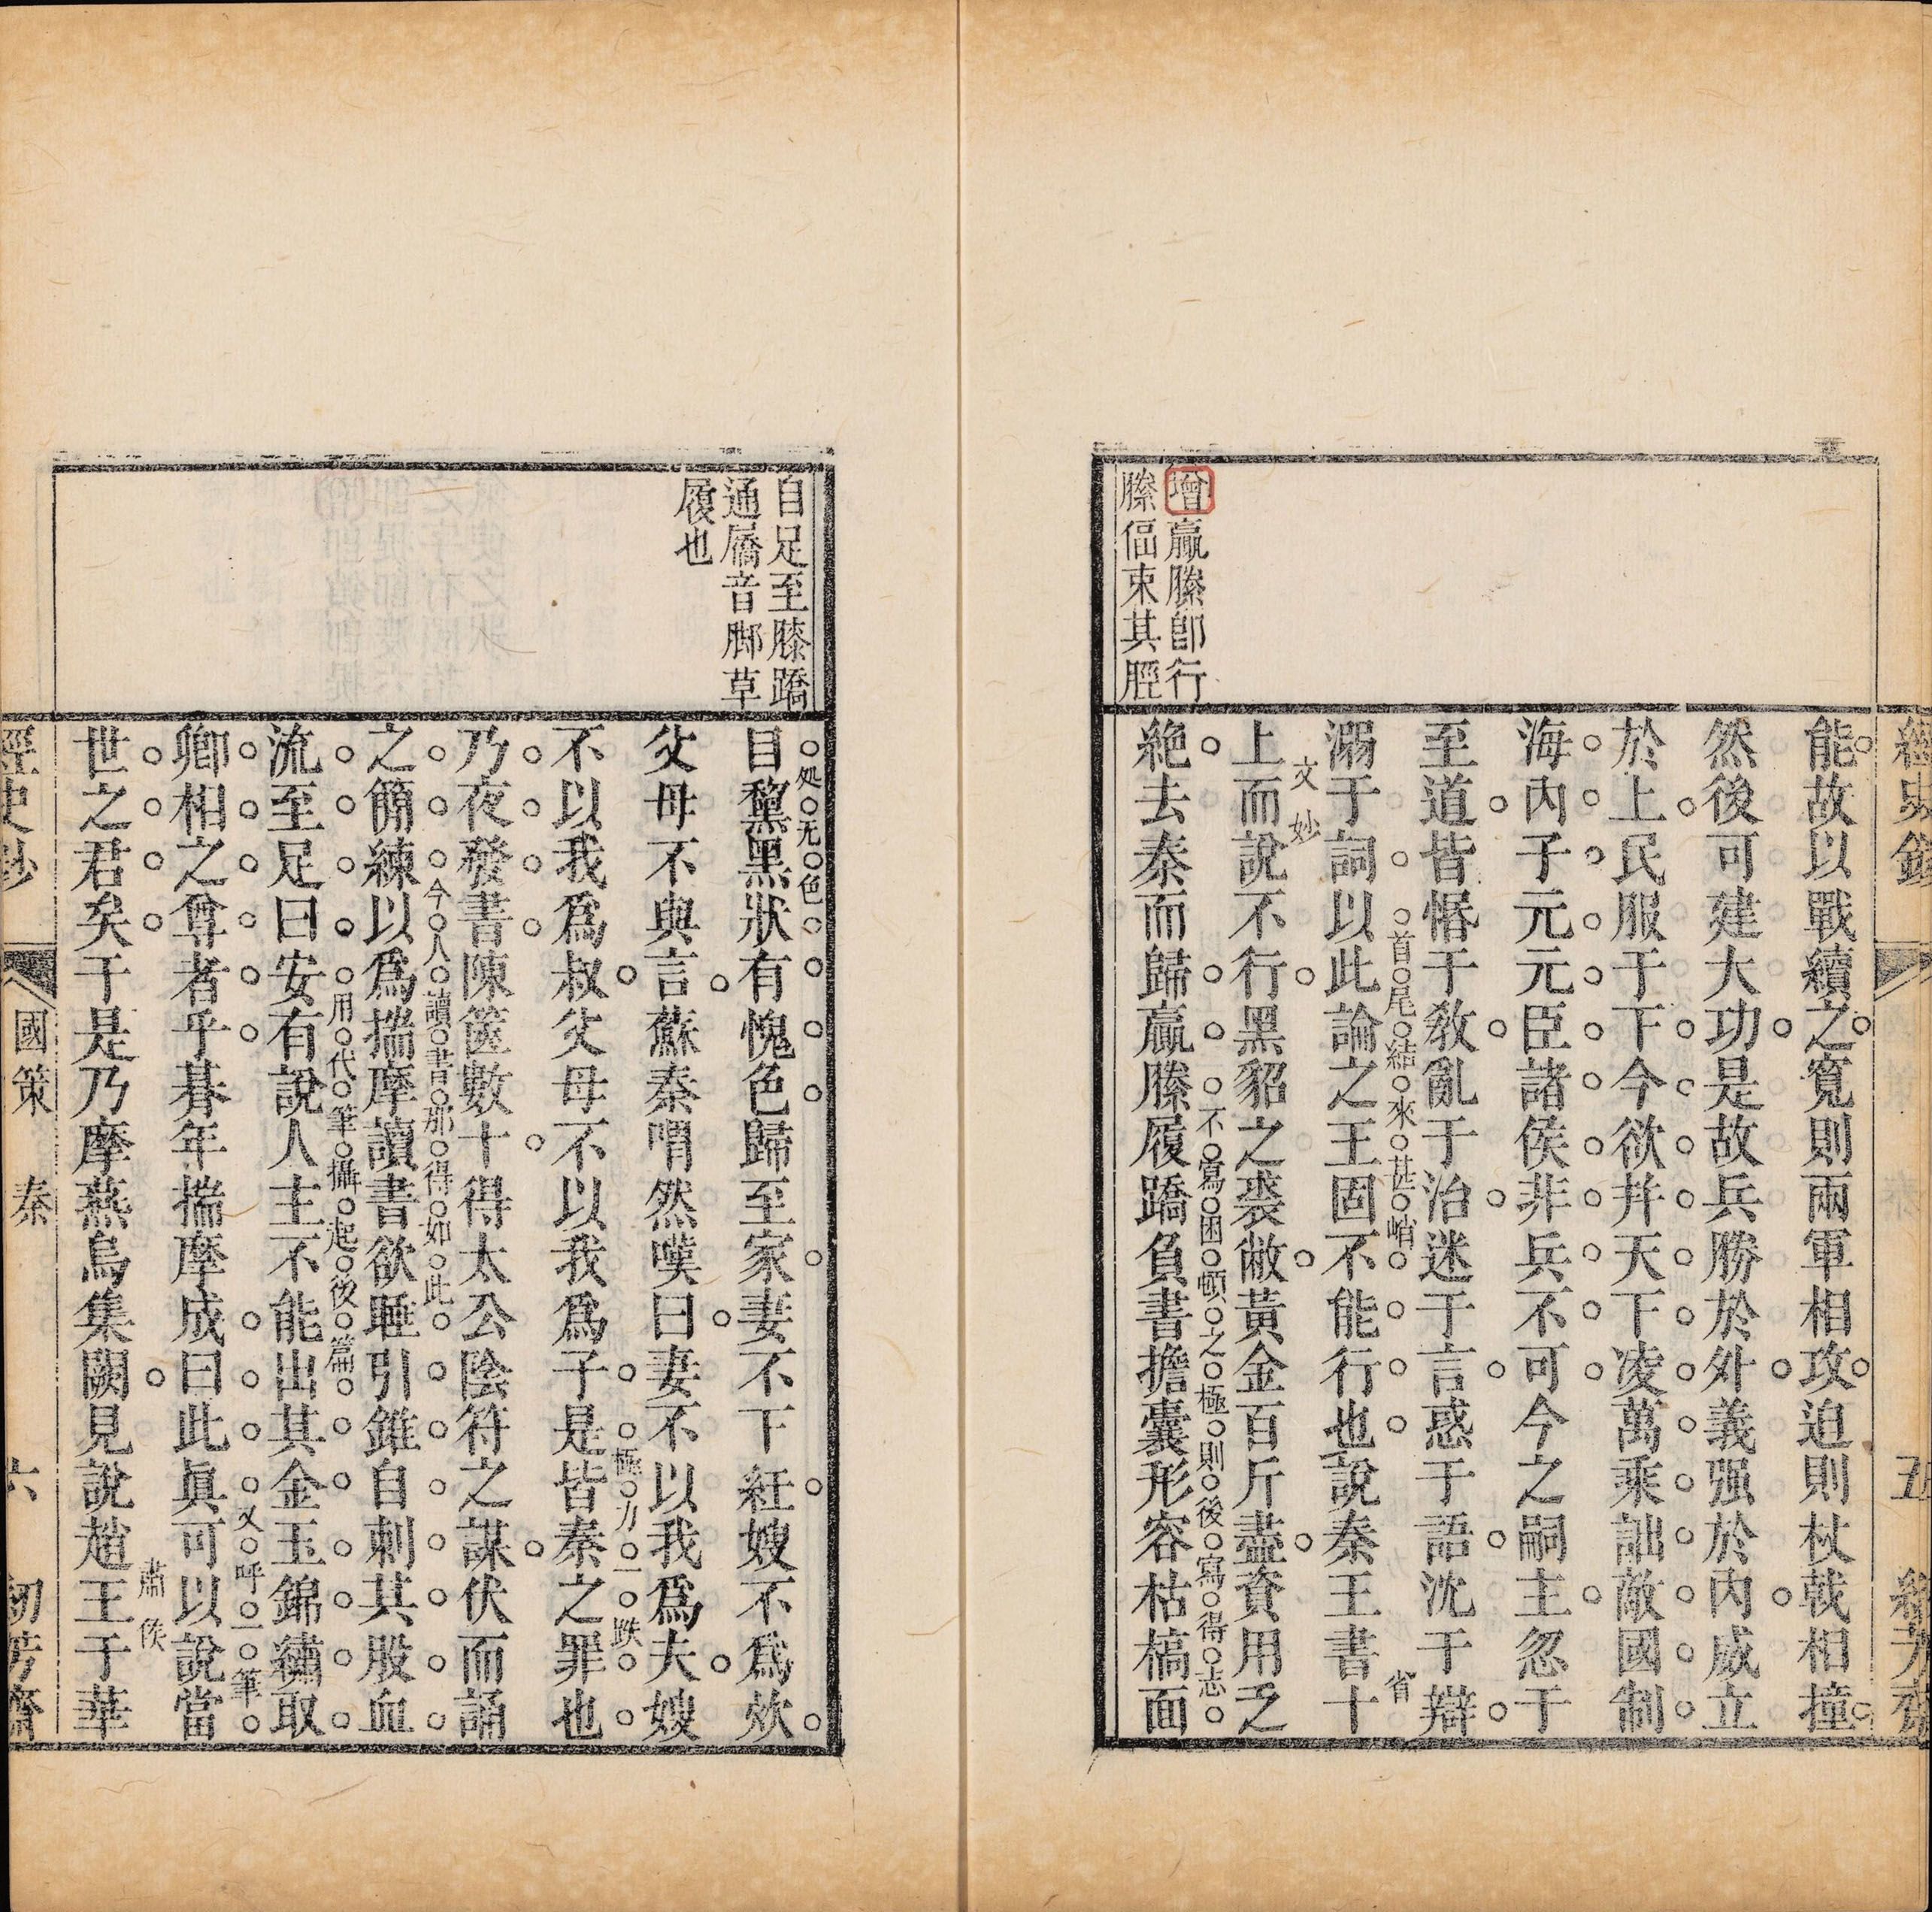 能故以戰續之寬則兩軍相攻迫則杖戟相撞
然後可建大功是故兵勝於外義强於內威立
於上民服于下今欲幷天下凌萬乘詘敵國制
海內子元元臣諸侯非兵不可今之嗣主忽于
至道皆惽于敎亂于治迷于言惑于語沈于辯
溺于詞以此論之王固不能行也說秦王書十
首尾結來甚峭
省
上而說不行黑貂之裘敝黃金百斤盡資用乏
文妙
絶去秦而歸羸縢履蹻負書擔囊形容枯槁面
不寫困頓之極則後寫得志
增羸縢卽行
縢偪束其脛
自足至膝蹻
通屩音脚草
履也
目黧黑狀有愧色歸至家妻不下紝嫂不爲炊
処无色
父母不與言蘇秦喟然嘆曰妻不以我爲夫嫂
不以我爲叔父母不以我爲子是皆秦之罪也
極力一跌
乃夜發書陳篋數十得太公陰符之謀伏而誦
之簡練以爲揣摩讀書欲睡引錐自刺其股血
今人讀書那得如此
流至足曰安有說人主不能出其金玉錦繡取
用代筆攝起後篇
卿相之尊者乎朞年揣摩成曰此眞可以說當
又呼一筆
世之君矣于是乃摩燕烏集闕見說趙王于華
肅侯
經史鈔
國策 秦
六